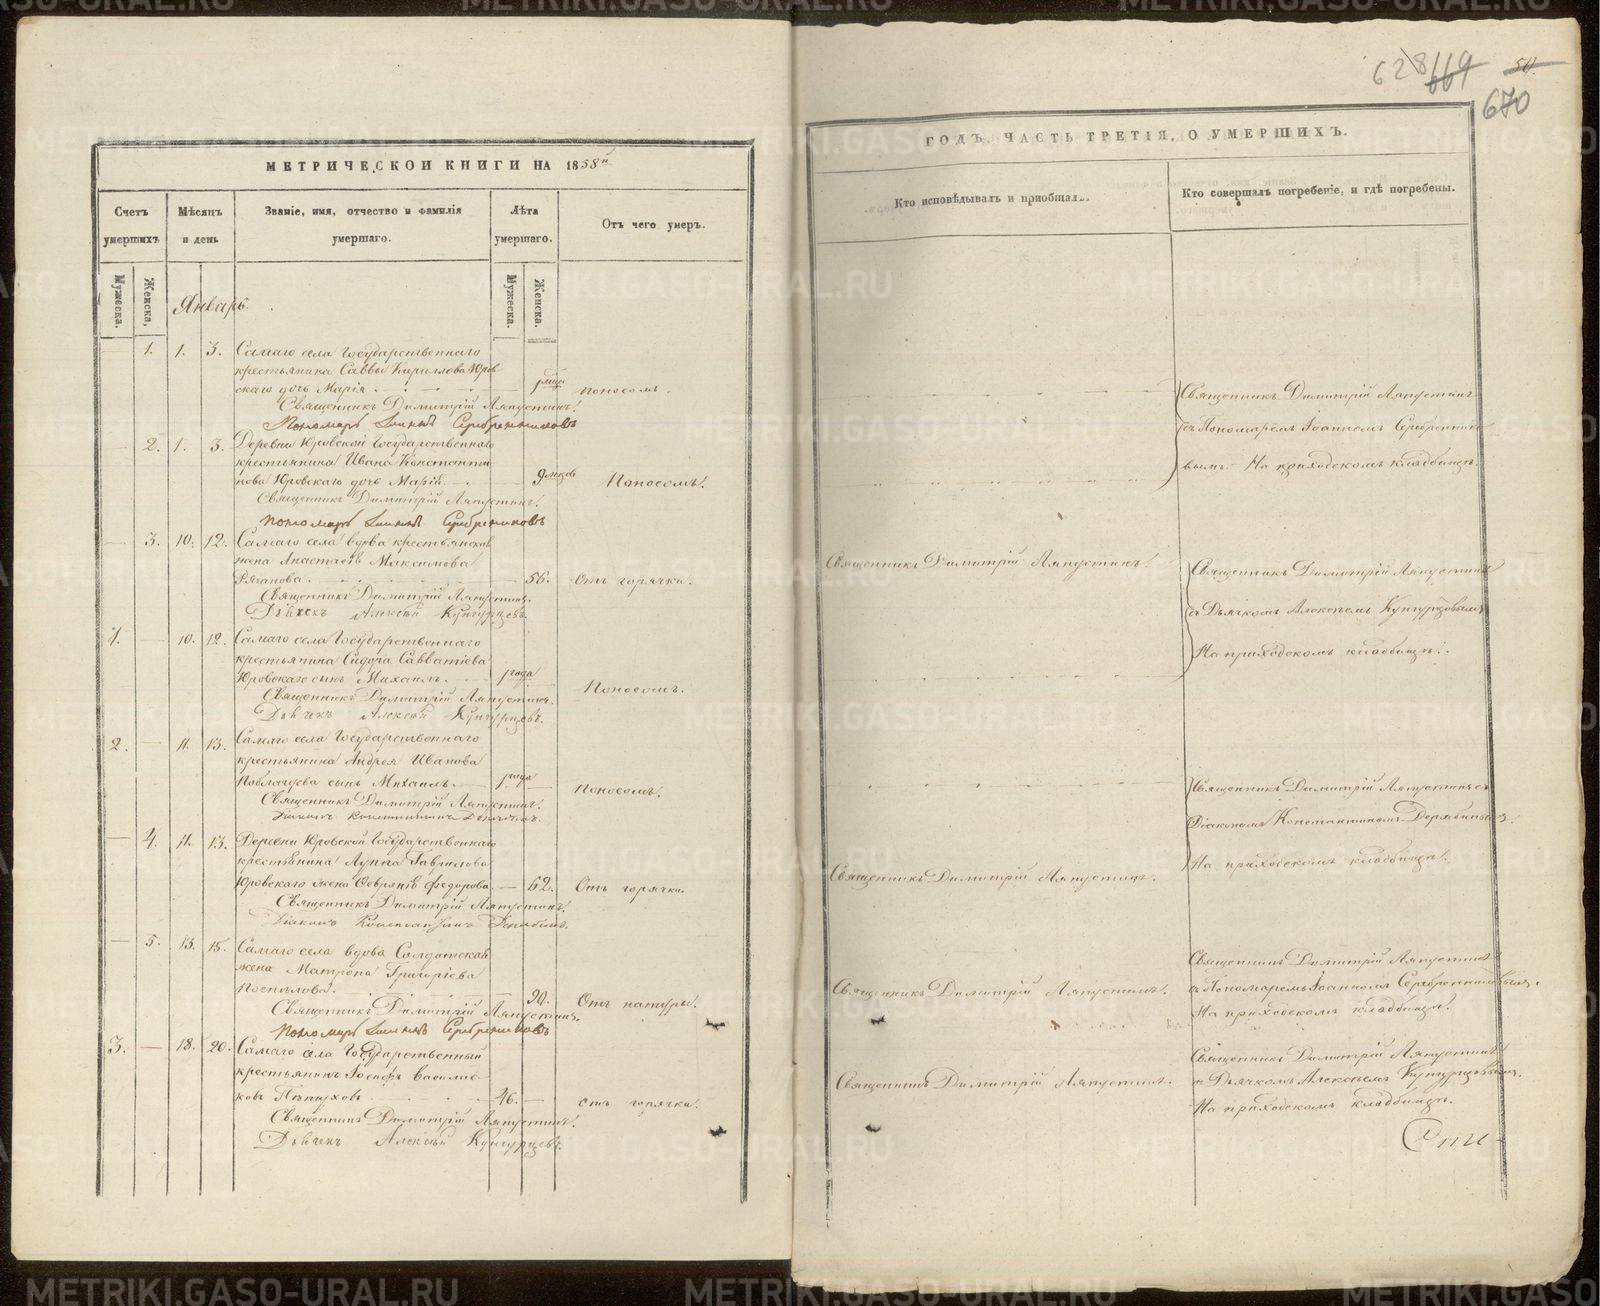 628 669 50.
670
МЕТРИЧЕСКОЙ КНИГИ НА 1858й
Счетъ умершихъ
Мѣсяцъ и день
Званіе, имя, отчество и фамилія умершаго.
Лѣта умершаго.
Отъ чего умеръ.
Мужеска.
Женска.
Мужеска.
Женска.
Январь.
1. 1. 3. Самаго села Государственнаго
крестьянина Саввы Кириллова Юров
скаго дочь Марія 1 мца поносомъ.
Священникъ Димитрій Ляпустинъ.
Пономарь Іоаннъ Серебренниковъ
2. 1. 3. Деревни Юровской Государственнаго
крестьянина Ивана Константи
нова Юровскаго дочь Марія. 9 мцов Поносомъ.
Священникъ Димитрій Ляпустинъ.
Пономарь Іоаннъ Серебренниковъ
3. 10. 12. Самаго села вдова крестьянская
жена Анастасія Максимова
Рязанова 56. Отъ горячки.
Священникъ Димитрій Ляпустинъ.
Дьячекъ Алексѣй Кунгурцовъ.
1. 10. 12. Самаго села Государственнаго
крестьянина Сидора Савватіева
Юровскаго сынъ Михаилъ. 1 года Поносомъ.
Священникъ Димитрій Ляпустинъ.
Дьячекъ Алексѣй Кунгурцовъ.
2. 11. 13. Самаго села Государственнаго
крестьянина Андрея Иванова
сынъ Михаилъ. 1 года Поносомъ.
Священникъ Димитрій Ляпустинъ.
Діаконъ Константинъ Дерябинъ.
4. 11. 13. Деревни Юровской Государственнаго
крестьянина Луппа Гаврилова
Юровскаго жена Февронія Федорова 62. Отъ горячки.
Священникъ Димитрій Ляпустинъ.
Діаконъ Константинъ Дерябинъ.
5. 13. 15. Самаго села вдова Солдатская
жена Матрона Григорьева
Поспѣлова. 90. Отъ натуры.
Священникъ Димитрій Ляпустинъ.
Пономарь Іоаннъ Серебренниковъ
3. 18. 20. Самаго села Государственный
крестьянинъ Іосифъ Василье
ковъ Пѣтуховъ 46. отъ горячки.
Священникъ Димитрій Ляпустинъ.
Дьячекъ Алексѣй Кунгурцовъ.
ГОДЪ, ЧАСТЬ ТРЕТІЯ, О УМЕРШИХЪ.
Кто исповѣдывалъ и пріобщалъ.
Кто совершалъ погребеніе, и гдѣ погребены.
Священникъ Димитрій Ляпустинъ
съ Пономаремъ Іоанномъ Серебреннико
вымъ. На приходскомъ кладбищѣ.
Священникъ Димитрій Ляпустинъ.
Священникъ Димитрій Ляпустинъ
съ Дьячкомъ Алексѣемъ Кунгурцовымъ
На приходскомъ кладбищѣ.
Священникъ Димитрій Ляпустинъ съ
Діакономъ Константиномъ Дерябинымъ.
На приходскомъ кладбищѣ.
Священникъ Димитрій Ляпустинъ.
Священникъ Димитрій Ляпустинъ
съ Пономаремъ Іоанномъ Серебренниковымъ.
На приходскомъ кладбищѣ.
Священникъ Димитрій Ляпустинъ.
Священникъ Димитрій Ляпустинъ
съ Дьячкомъ Алексѣемъ Кунгурцовымъ.
На приходскомъ кладбищѣ.
Священникъ Димитрій Ляпустинъ.
METRIKI.GASO-URAL.RU